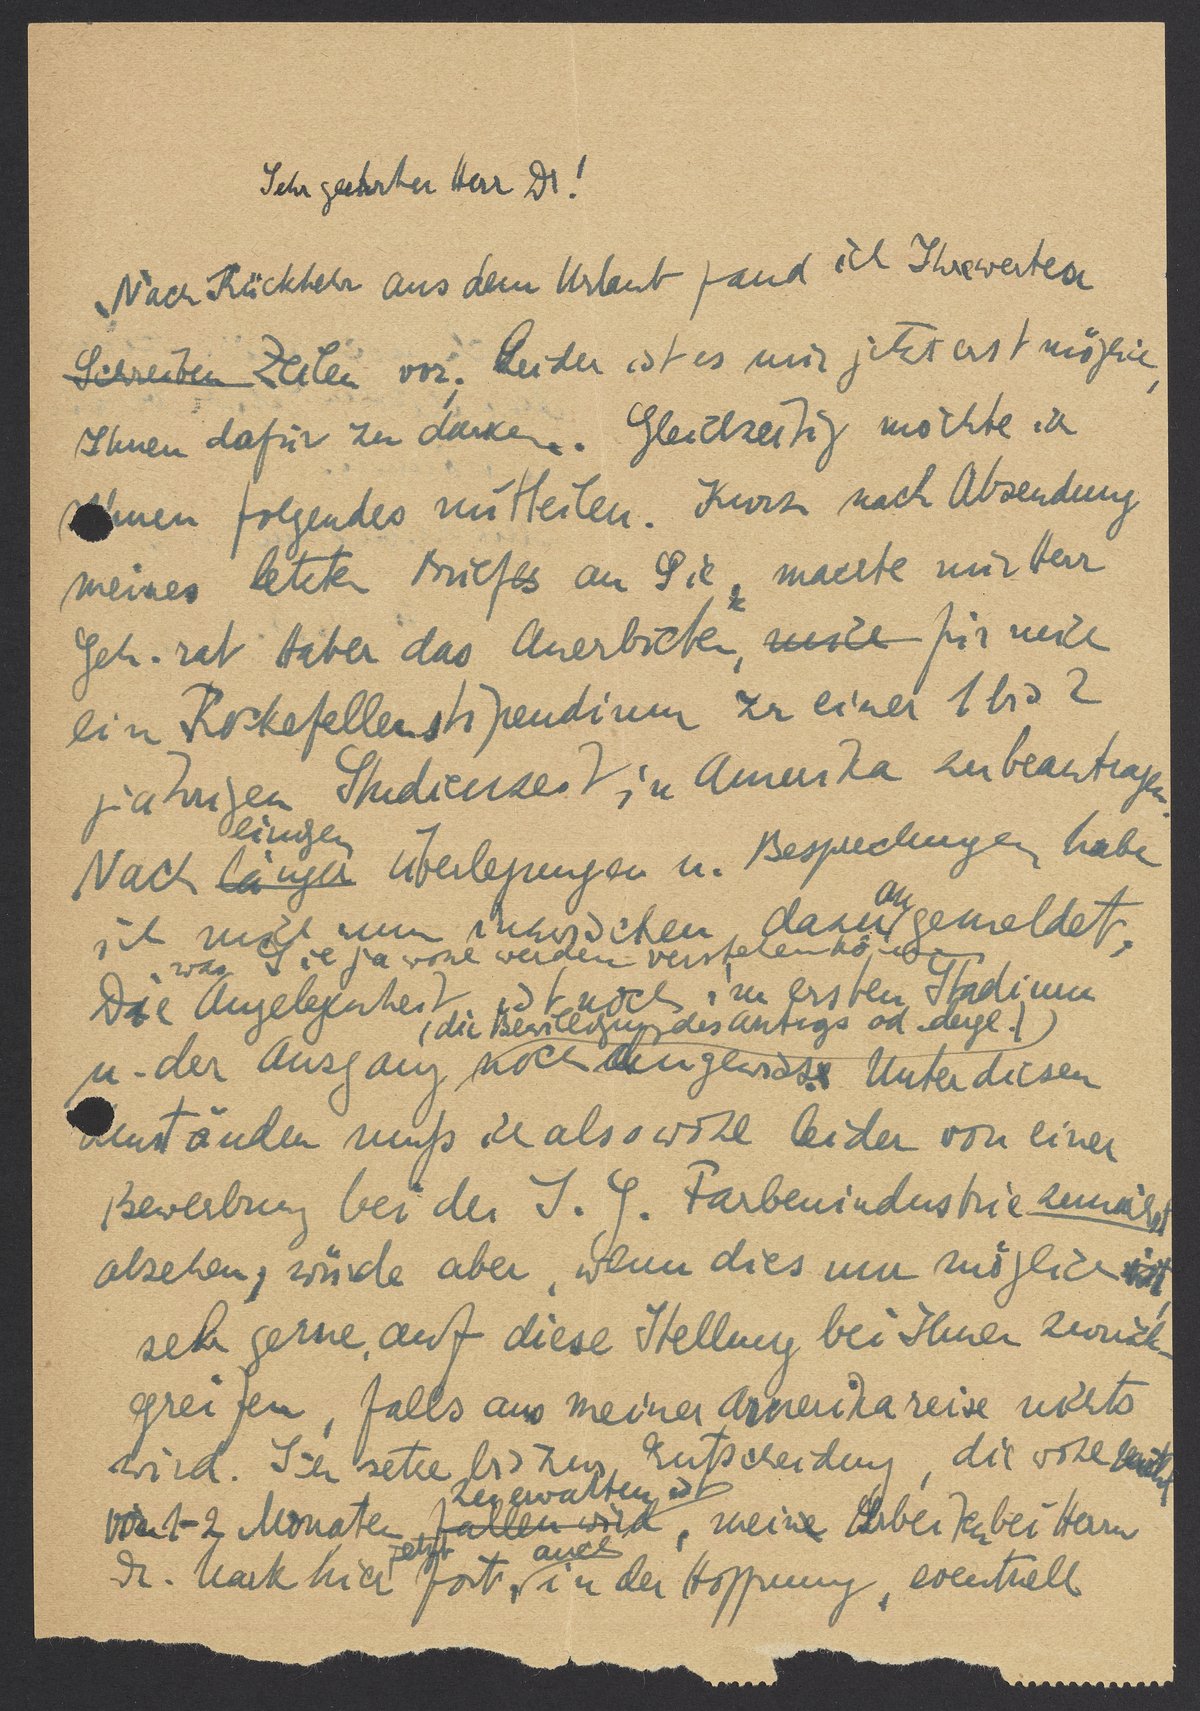 Sehr geehrter Herr Dr!
Nach Rückkehr aus dem Urlaub fand ich Ihre werten
Schreiben Zeilen vor; Leider ist es mir jetzt erst möglich,
Ihnen dafür zu danken. Gleichzeitig möchte ich
Ihnen folgendes mitteilen. Kurz nach Absendung
meines letzten Briefes an Sie, machte mir Herr
Geh.rat Haber das Anerbieten, mich für mich
ein Rockefellerstipendium zu einer 1 bis 2
jährigen Studienzeit in Amerika zu beantragen.
einigen
Nach langer Überlegungen u. Besprechungen habe
an
ich mich nun inzwischen dazu gemeldet,
was Sie ja wohl werden verstehen können
Die Angelegenheit ist noch im ersten Stadium
(die Bewilligung des Antrags od. dergl.)
u. der Ausgang noch ungewiss. Unter diesen
Umständen muß ich also wohl leider von einer
Bewerbung bei der I. G. Farbenindustrie zunächst
absehen, würde aber, wenn dies nun möglich ist,
sehr gerne, auf diese Stellung bei Ihnen zurück-
greifen, falls aus meiner Amerikareise nichts
wird. Ich setze bis zur Entscheidung, die wohl
zu erwarten ist
1-2 Monaten fallen wird, meine Arbeiten bei Herrn
jetzt auch
Dr. Mark hier fort, in der Hoffnung, eventuell